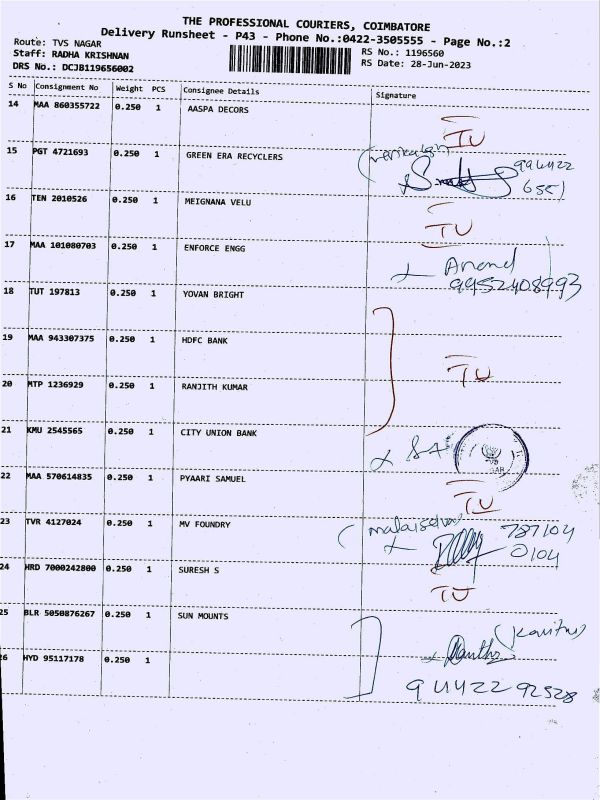 THE PROFESSIONAL COURIERS, COIMBATORE
Delivery Runsheet - P43 - Phone No.:0422-3505555 - Page No.:2
Route: TVS NAGAR
Staff: RADHA KRISHNAN
DRS No.: DCJB119656002
RS No.: 1196560
RS Date: 28-Jun-2023
S No Consignment No Weight PCS Consignee Details Signature
14 MAA 860355722 0.250 1 AASPA DECORS
TU
15 PGT 4721693 0.250 1 GREEN ERA RECYCLERS
994422
6551
16 TEN 2010526 0.250 1 MEIGNANA VELU
TU
17 MAA 101080703 0.250 1 ENFORCE ENGG
Anand
9952408993
18 TUT 197813 0.250 1 YOVAN BRIGHT
19 MAA 943307375 0.250 1 HDFC BANK
TU
20 MTP 1236929 0.250 1 RANJITH KUMAR
21 KMU 2545565 0.250 1 CITY UNION BANK
22 MAA 570614835 0.250 1 PYAARI SAMUEL
TU
23 TVR 4127024 0.250 1 MV FOUNDRY
787104
0104
24 HRD 7000242800 0.250 1 SURESH S
TU
25 BLR 5050876267 0.250 1 SUN MOUNTS
26 HYD 95117178 0.250 1
94422 92528